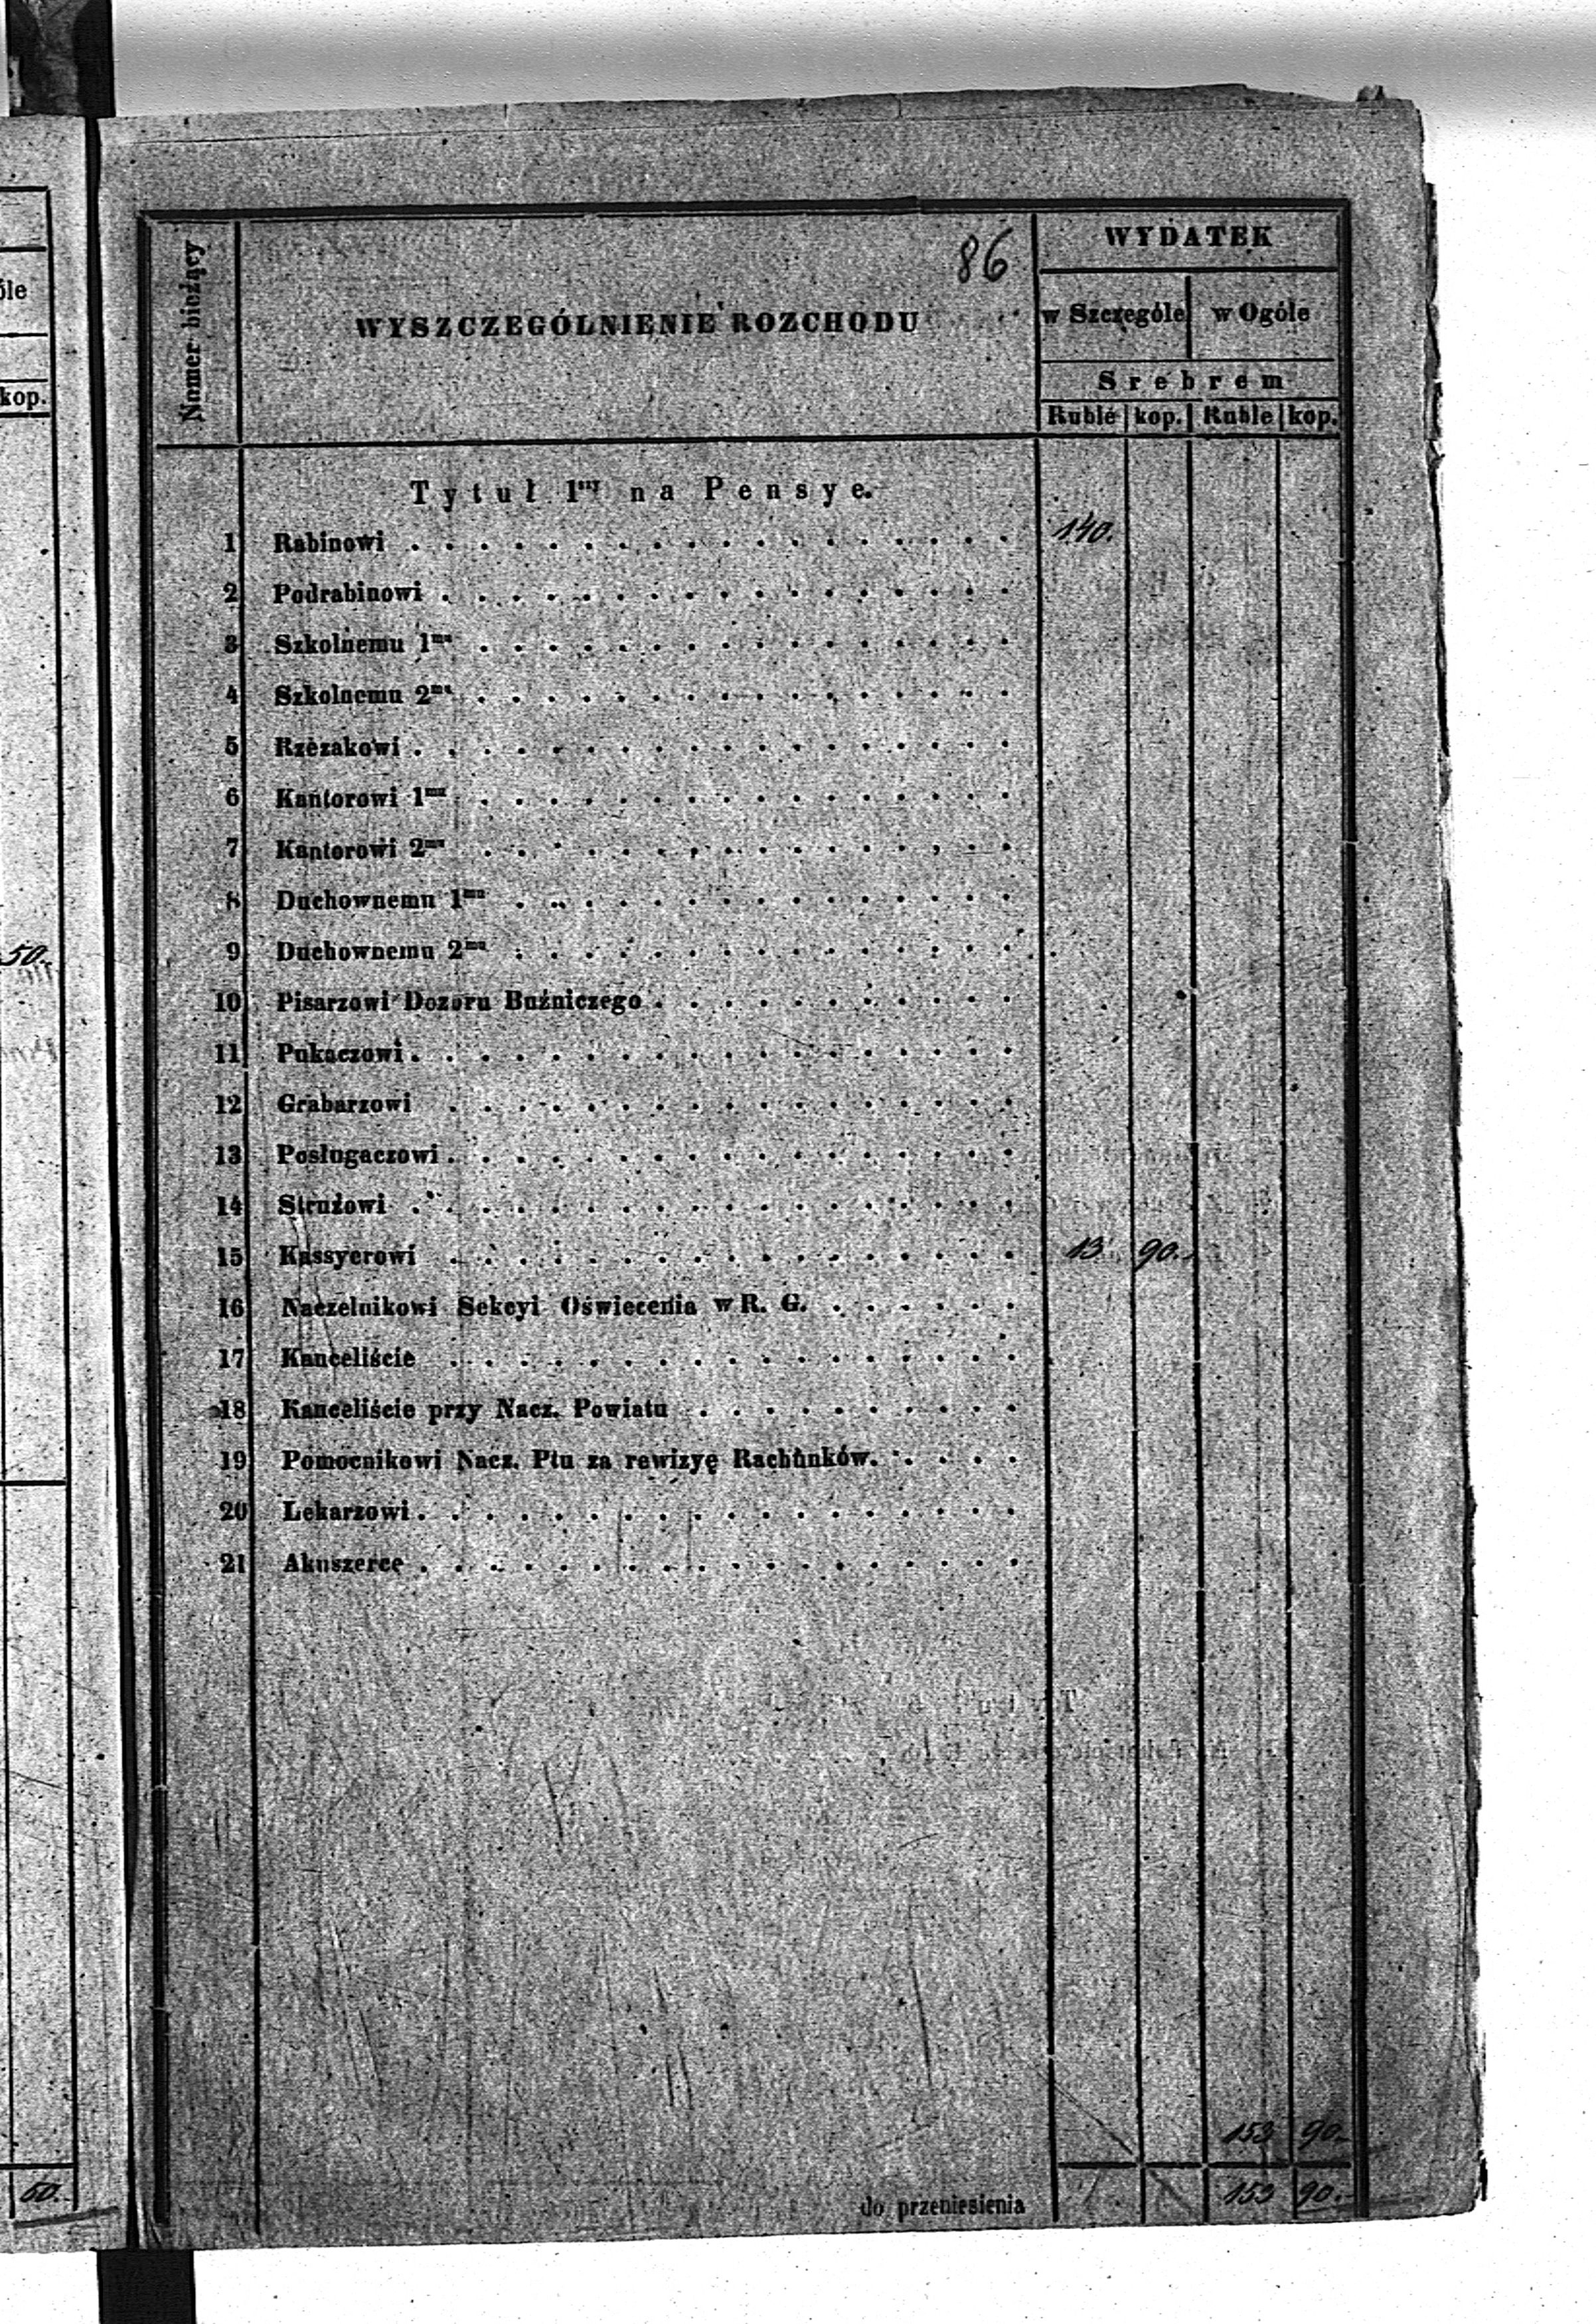 óle
kop.
50.
60.
86
Numer bieżący
WYSZCZEGÓLNIENIE ROZCHODU
WYDATEK
w Szczególe w Ogóle
Srebrem
Ruble kop. Ruble kop.
Tytuł 1ny na Pensye.
1 Rabinowi 140.
2 Podrabinowi
3 Szkolnemu 1mu
4 Szkolnemu 2mu
5 Rzezakowi
6 Kantorowi 1mu
7 Kantorowi 2mu
8 Duchownemu 1mu
9 Duchownemu 2mu
10 Pisarzowi Dozoru Bużniczego
11 Pukaczowi
12 Grabarzowi
13 Posługaczowi
14 Strużowi
15 Kassyerowi 13 90.
16 Naczelnikowi Sekcyi Oświecenia w R. G.
17 Kanceliście
18 Kanceliście przy Nacz. Powiatu
19 Pomocnikowi Nacz. Ptu za rewizyę Rachunków.
20 Lekarzowi
21 Akuszerce
153 90.
do przeniesienia 153 90.